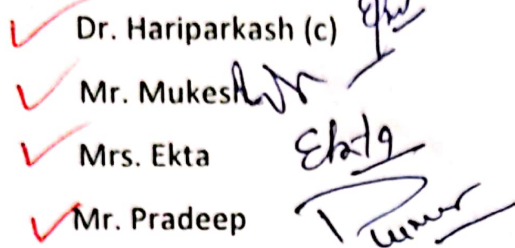 Dr. Hariparkash (c)
Mr. Mukesh
Mrs. Ekta Ekta
Mr. Pradeep